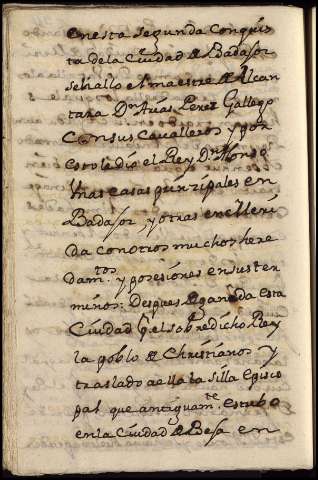 en esta segunda conquis
ta de la Ciudad de Badajoz
se hallo el maestre de Alcan
tara Dn Arias Perez Gallego
con sus cavalleros y por
esto le dio el Rey Dn Alonso
unas casas prinzipales en
Badajoz, y otras en elleri
da con otros muchos here
damtos y posesiones en sus ter
minos: Despues de ganada esta
Ciudad q el sobredicho Rey
la poblo de Christianos y
traslado a ella la Silla Episco
pal que antiguamte estubo
en la Ciudad de Beja en